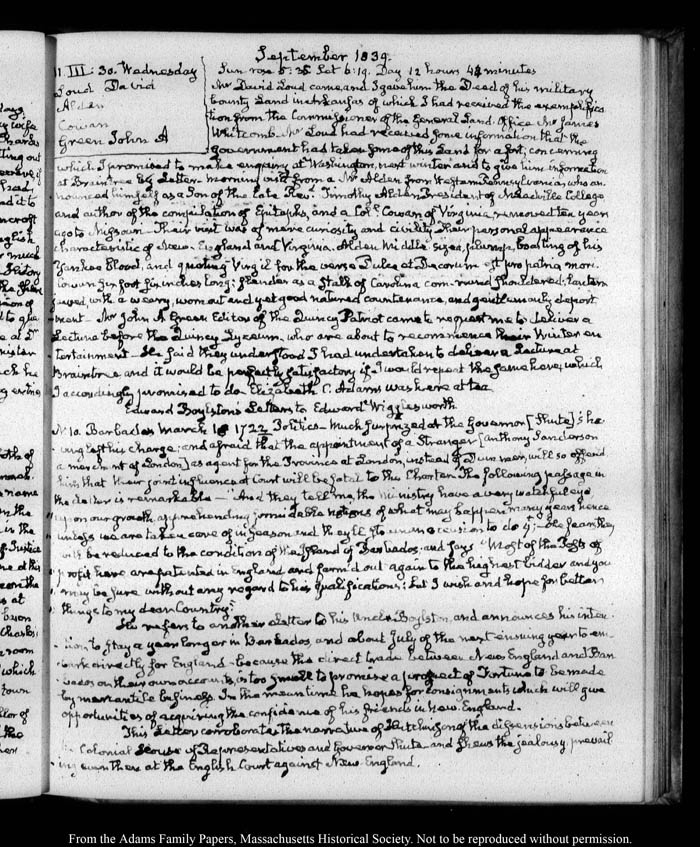 September 1839.
11. III: 30. Wednesday
Loud David
Alden
Cowan
Green John A
Sun rose 5:38 Set 6:19. Day 12 hours 42 minutes
Mr David Loud came, and I gave him the Deed of his military
bounty Land in Arkansas of which I had received the exemplifica
tion from the Commissioner of the General Land Office Mr James
Whitcomb. Mr Loud had received some information that the
government had taken some of this Land for a fort, concerning
which I promised to make enquiry at Washington, next winter and to give him information
at Braintree by Letter. Morning visit from a Mr Alden from Western Pennsylvania, who an
nounced himself as a Son of the late Revd. Timothy Alden President of Meadville College
and author of the compilation of Epitaphs, and a Coll. Cowan of Virginia, removed ten years
ago to Missouri. Their visit was of mere curiosity and civility. Their personal appearance
characteristic of New-England and Virginia. Alden middle sized, plump, boasting of his
Yankee Blood, and quoting Virgil for the verse Dulce et Decorum est pro patria mori.
Cowan six foot six inches long: slender as a stalk of Carolina corn. round shouldered: lantern
jawed, with a weary, wornout and yet good natured countenance, and gentlemanly deport
ment. Mr John A Green Editor of the Quincy Patriot came to request me to deliver a
Lecture before the Quincy Lyceum, who are about to recommence their Winter en
tertainment. He said they understood I had undertaken to deliver a Lecture at
Braintree and it would be perfectly satisfactory if I would repeat the same here; which
I accordingly promised to do. Elizabeth C. Adams was here at tea
Edward Boylston's Letters to Edward Wigglesworth
N. 10. Barbados March 1722 Politics. Much surprized at the Governor [Shute]'s he
ving left his charge; and afraid that the appointment of a Stranger [Anthony Sanderson
a merchant of London] as agent for the Province at London, instead of Dummer, will so offend
him that their joint influence at Court will be fatal to the Charter. The following passage in
the Letter is remarkable — "And they tell me, the Ministry have a very watchful eye
upon our growth, apprehending formidable notions of what may happen many years hence
unless we are taken care of in season and they'll to own occasion to do it; He fears they
will be reduced to the condition of the Island of Barbados, and says "Most of the Posts of
profit here are patented in England and farm'd out again to the highest bidder and you
may be sure without any regard to his qualifications: but I wish and hope for better
things to my dear Country.
He refers to another Letter to his Uncle Boylston, and announces his inten
tion to stay a year longer in Barbados, and about July of the next ensuing year to em
bark directly for England—because the direct trade between New England and Bar
bados on their own account, is too small to promise a prospect of Fortune to be made
by mercantile business. In the meantime he hopes for consignments which will give
opportunities of acquiring the confidence of his friends in New England.
This Letter corroborates the narrative of Hutchinson of the dissensions between
the Colonial House of Representatives and Governor Shute and shews the jealousy prevail
ing even then at the English Court against New England.
From the Adams Family Papers, Massachusetts Historical Society. Not to be reproduced without permission.